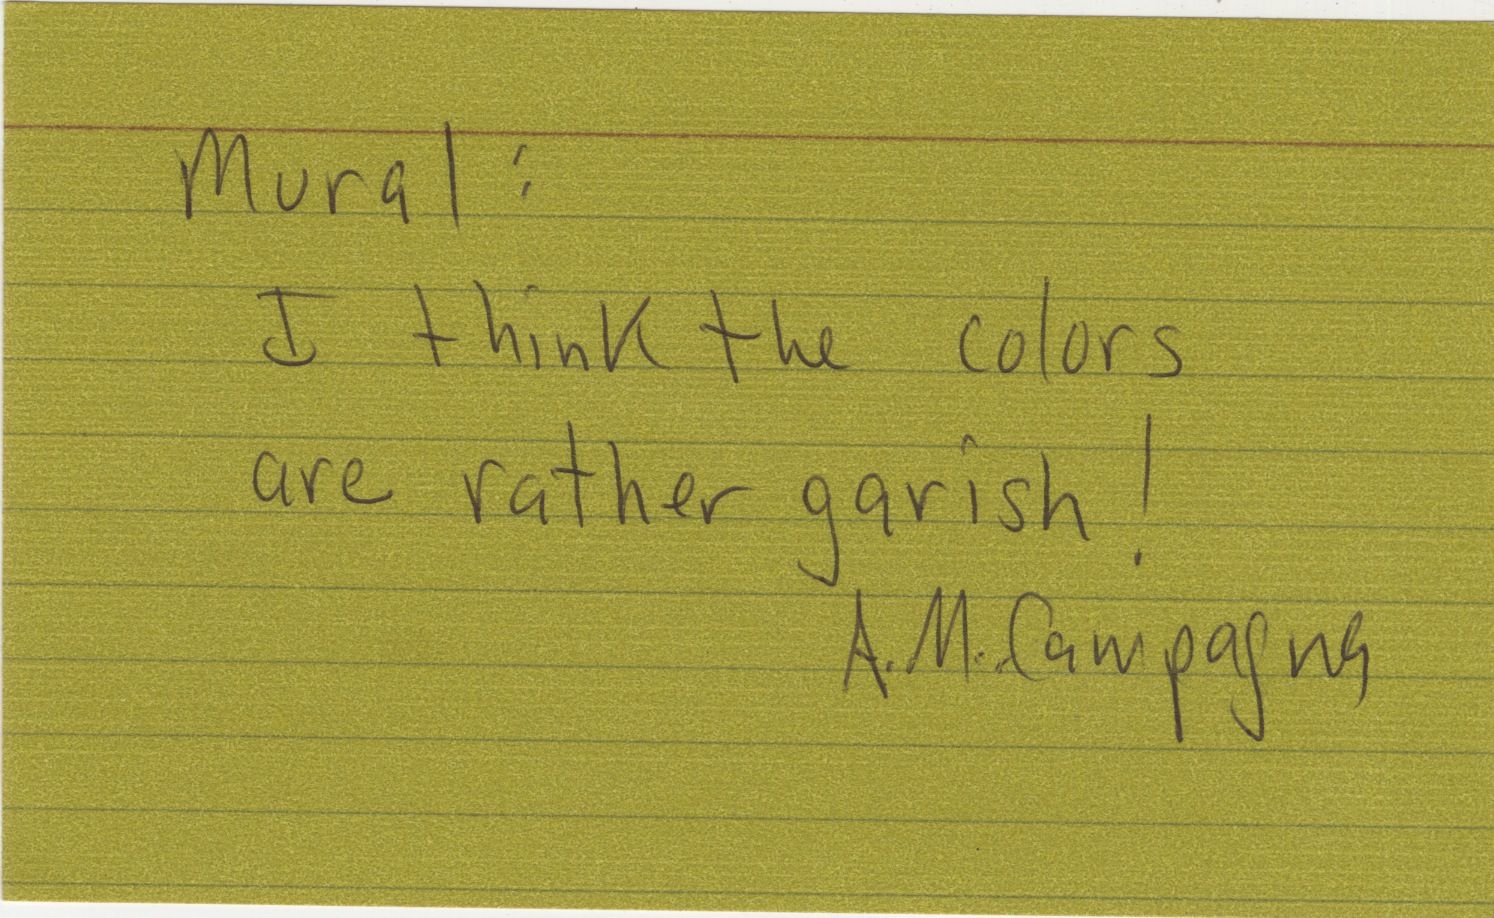 Mural:
I think the colors
are rather garish!
A.M. Campagna